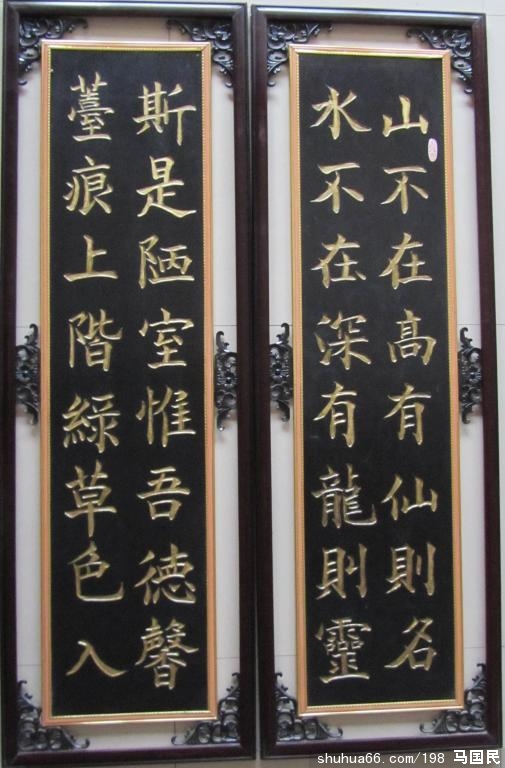 山不在高有仙則名
水不在深有龍則靈
斯是陋室惟吾德馨
薹痕上階綠草色入
shuhua66.com/198 马国民